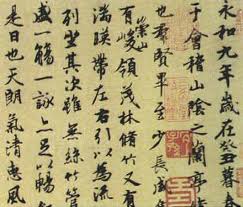 永和九年歲在癸丑暮春
于會稽山陰之蘭亭
也羣賢畢至少長咸
崇山
有峻領茂林脩竹又有
湍暎帶左右引以爲流
列坐其次雖無絲竹管
盛一觴一詠亦足以暢
是日也天朗氣清惠風